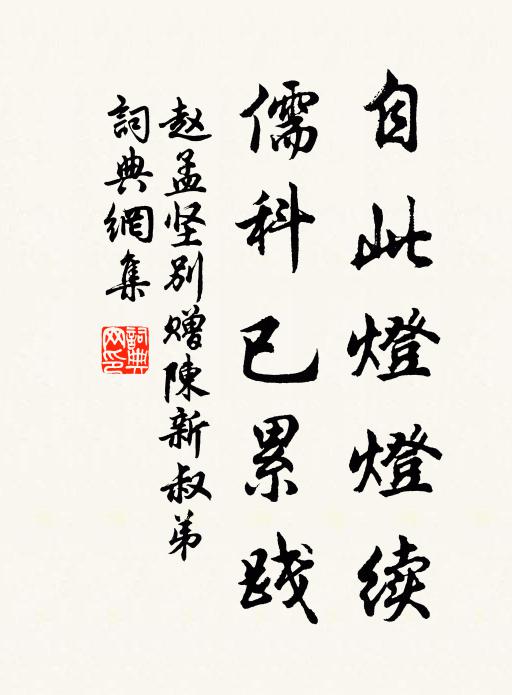 自此燈燈续
儒科已累践
赵孟坚别赠陳新叔弟
詞典網集
詞典网印